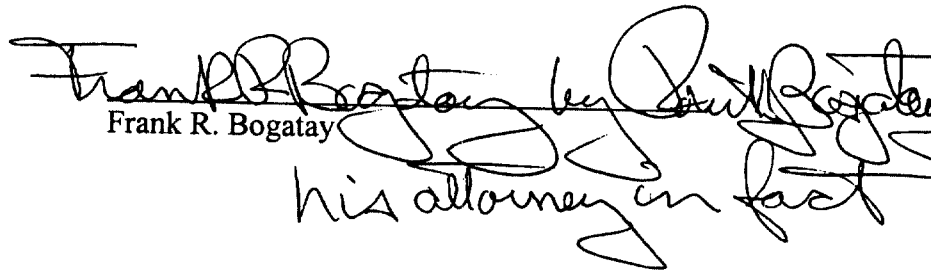 Frank R. Bogatay by Paul Bogatay
Frank R. Bogatay
his attorney in fact